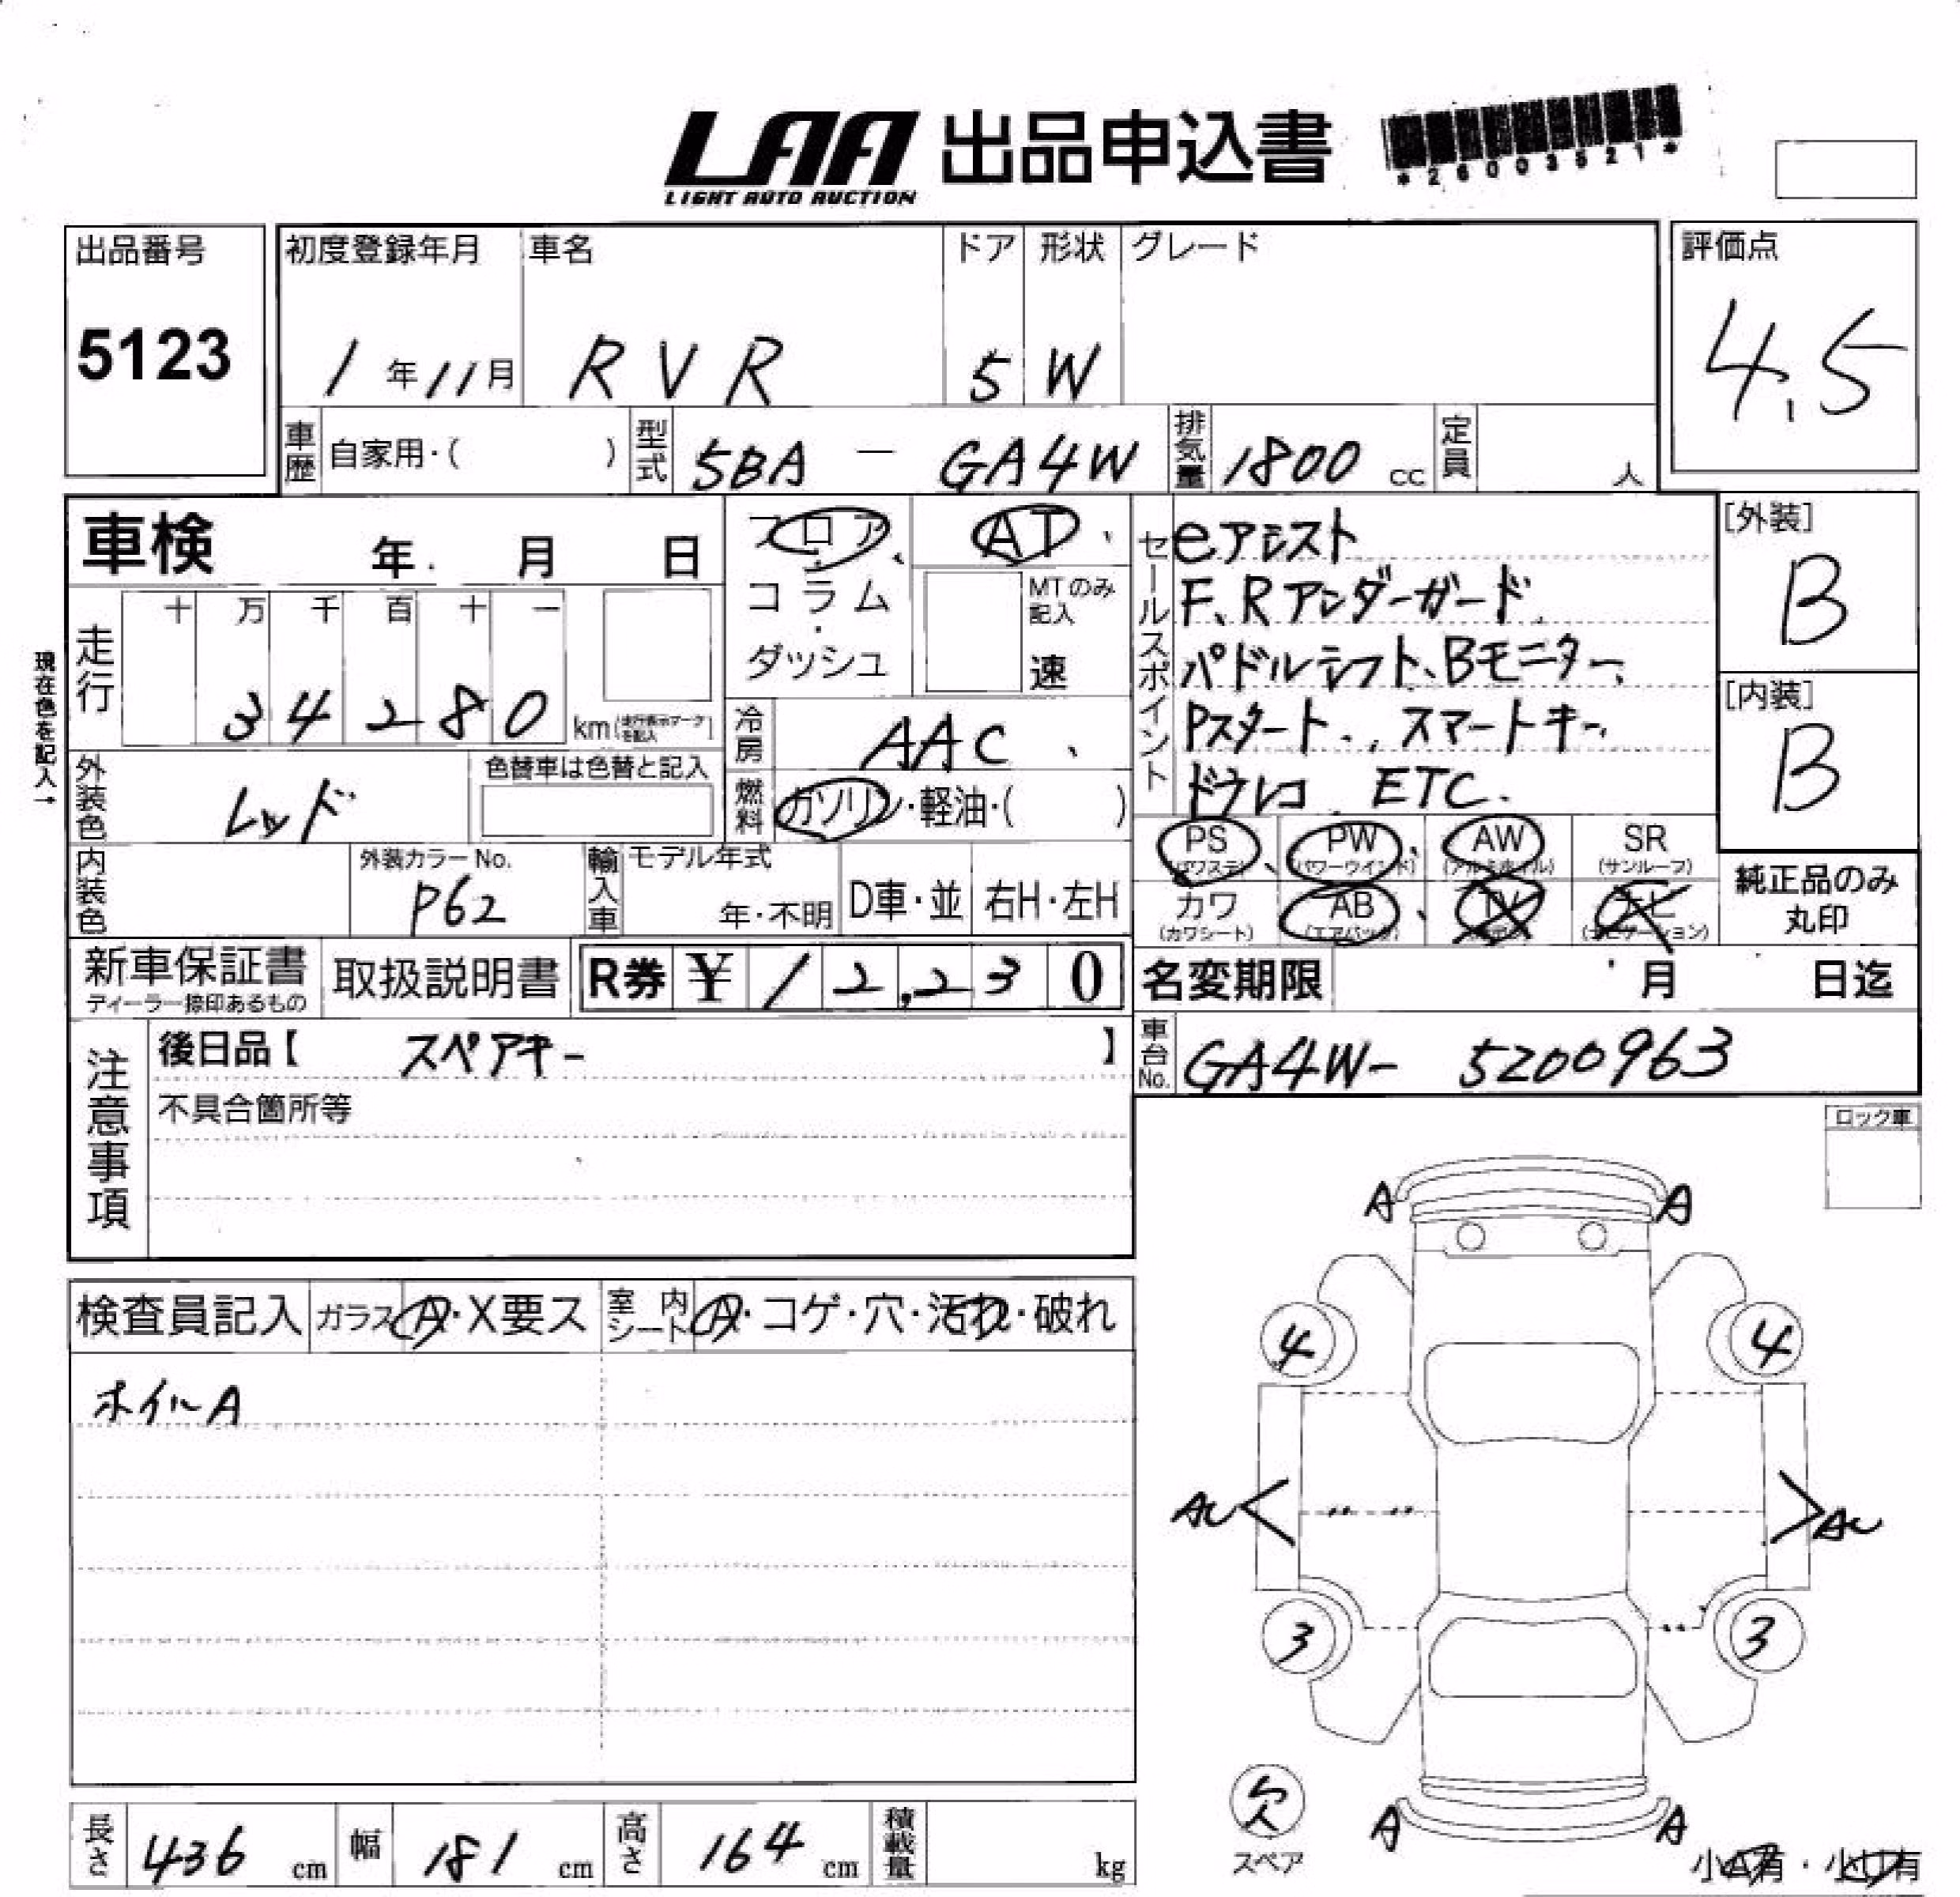 LAA 出品申込書
LIGHT AUTO AUCTION
*26003521*
出品番号
5123
初度登録年月 車名 ドア 形状 グレード
1年11月 RVR 5 W
評価点
4.5
車歴 自家用・( ) 型式 5BA - GA4W 排気量 1800 cc 定員 人
車検 年 月 日
フロア・コラム・ダッシュ
AT
MTのみ記入
速
現在色を記入→
走行 十 万 千 百 十 一
34280 km(走行表示マークを記入)
冷房 AAC
燃料 ガソリン・軽油・( )
外装色 レッド
色替車は色替と記入
内装色
外装カラーNo.
P62
輸入車 モデル年式
年・不明 D車・並 右H・左H
セールスポイント
eアシスト
F、Rアンダーガード、
パドルシフト、Bモニター、
Pスタート、スマートキー、
ドウレコ ETC.
[外装]
B
[内装]
B
PS (パワステ) PW (パワーウインド) AW (アルミホイル) SR (サンルーフ)
カワ (カワシート) AB (エアバッグ) TV ナビ (ナビゲーション)
純正品のみ
丸印
新車保証書
ディーラー捺印あるもの
取扱説明書
R券 ¥12,230
名変期限 月 日迄
車台No. GA4W- 5200963
注意事項
後日品【 スペアキー 】
不具合箇所等
ロック車
検査員記入 ガラス A・X要ス 室内シート A・コゲ・穴・汚れ・破れ
ホイルA
A A
4 4
AU AU
3 3
欠
スペア
A A
小A有・小U有
長さ 436 cm 幅 181 cm 高さ 164 cm 積載量 kg